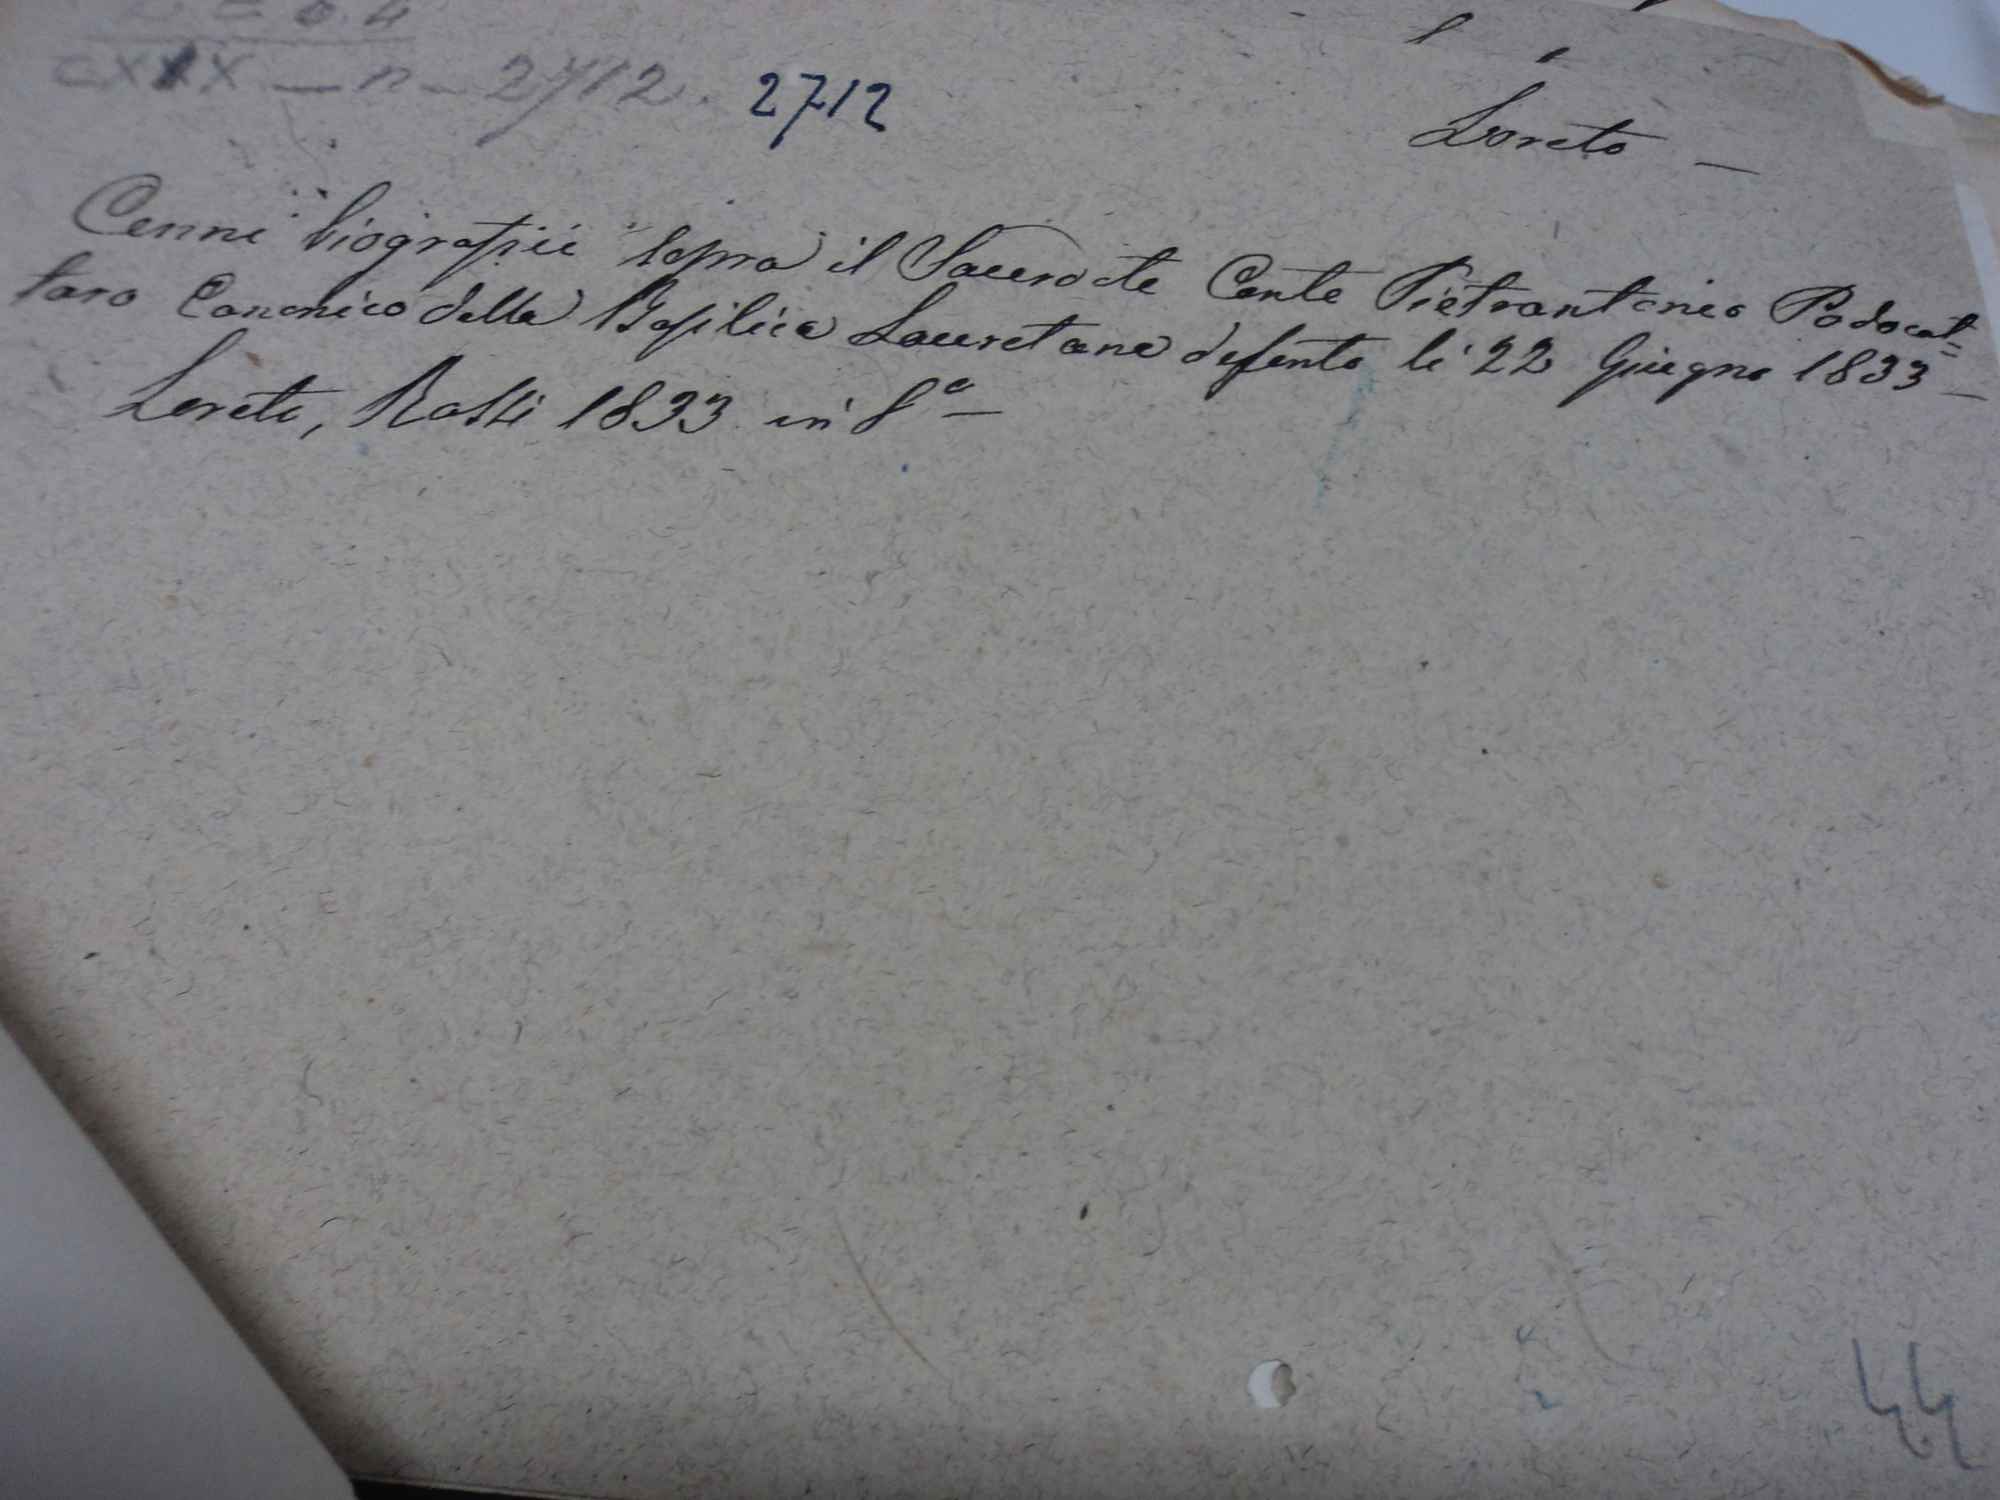 CXXX - n - 2712. 2712
Loreto -
Cenni biografici sopra il Sacerdote Conte Pietrantonio Podocat=
taro Canonico della Basilica Lauretana defunto li 22 Giugno 1833 -
Loreto, Rossi 1833 in 8° -
44